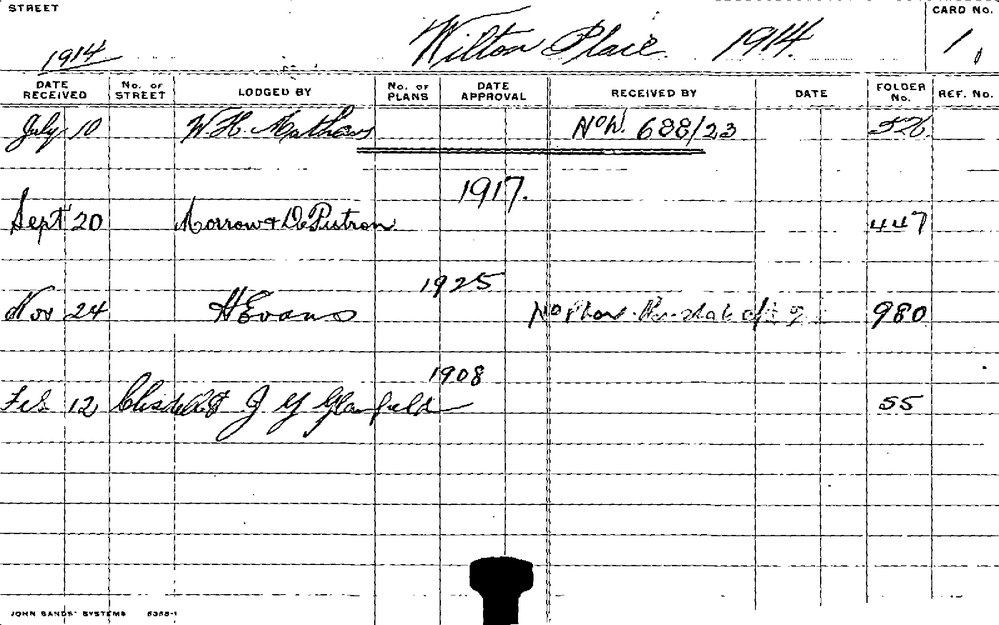 STREET
CARD No.
1914 Wilton Place 1914. 1
DATE RECEIVED No. OF STREET LODGED BY No. OF PLANS DATE APPROVAL RECEIVED BY DATE FOLDER No. REF. No.
July 10 W. H. Mathews 688/23 526
1917.
Sept 20 Morrow & De Putron 447
1925
Nov 24 H Evans No Plans 980
1908
Feb 12 J Y Glanfield 55
JOHN SANDS' SYSTEMS 5355-1